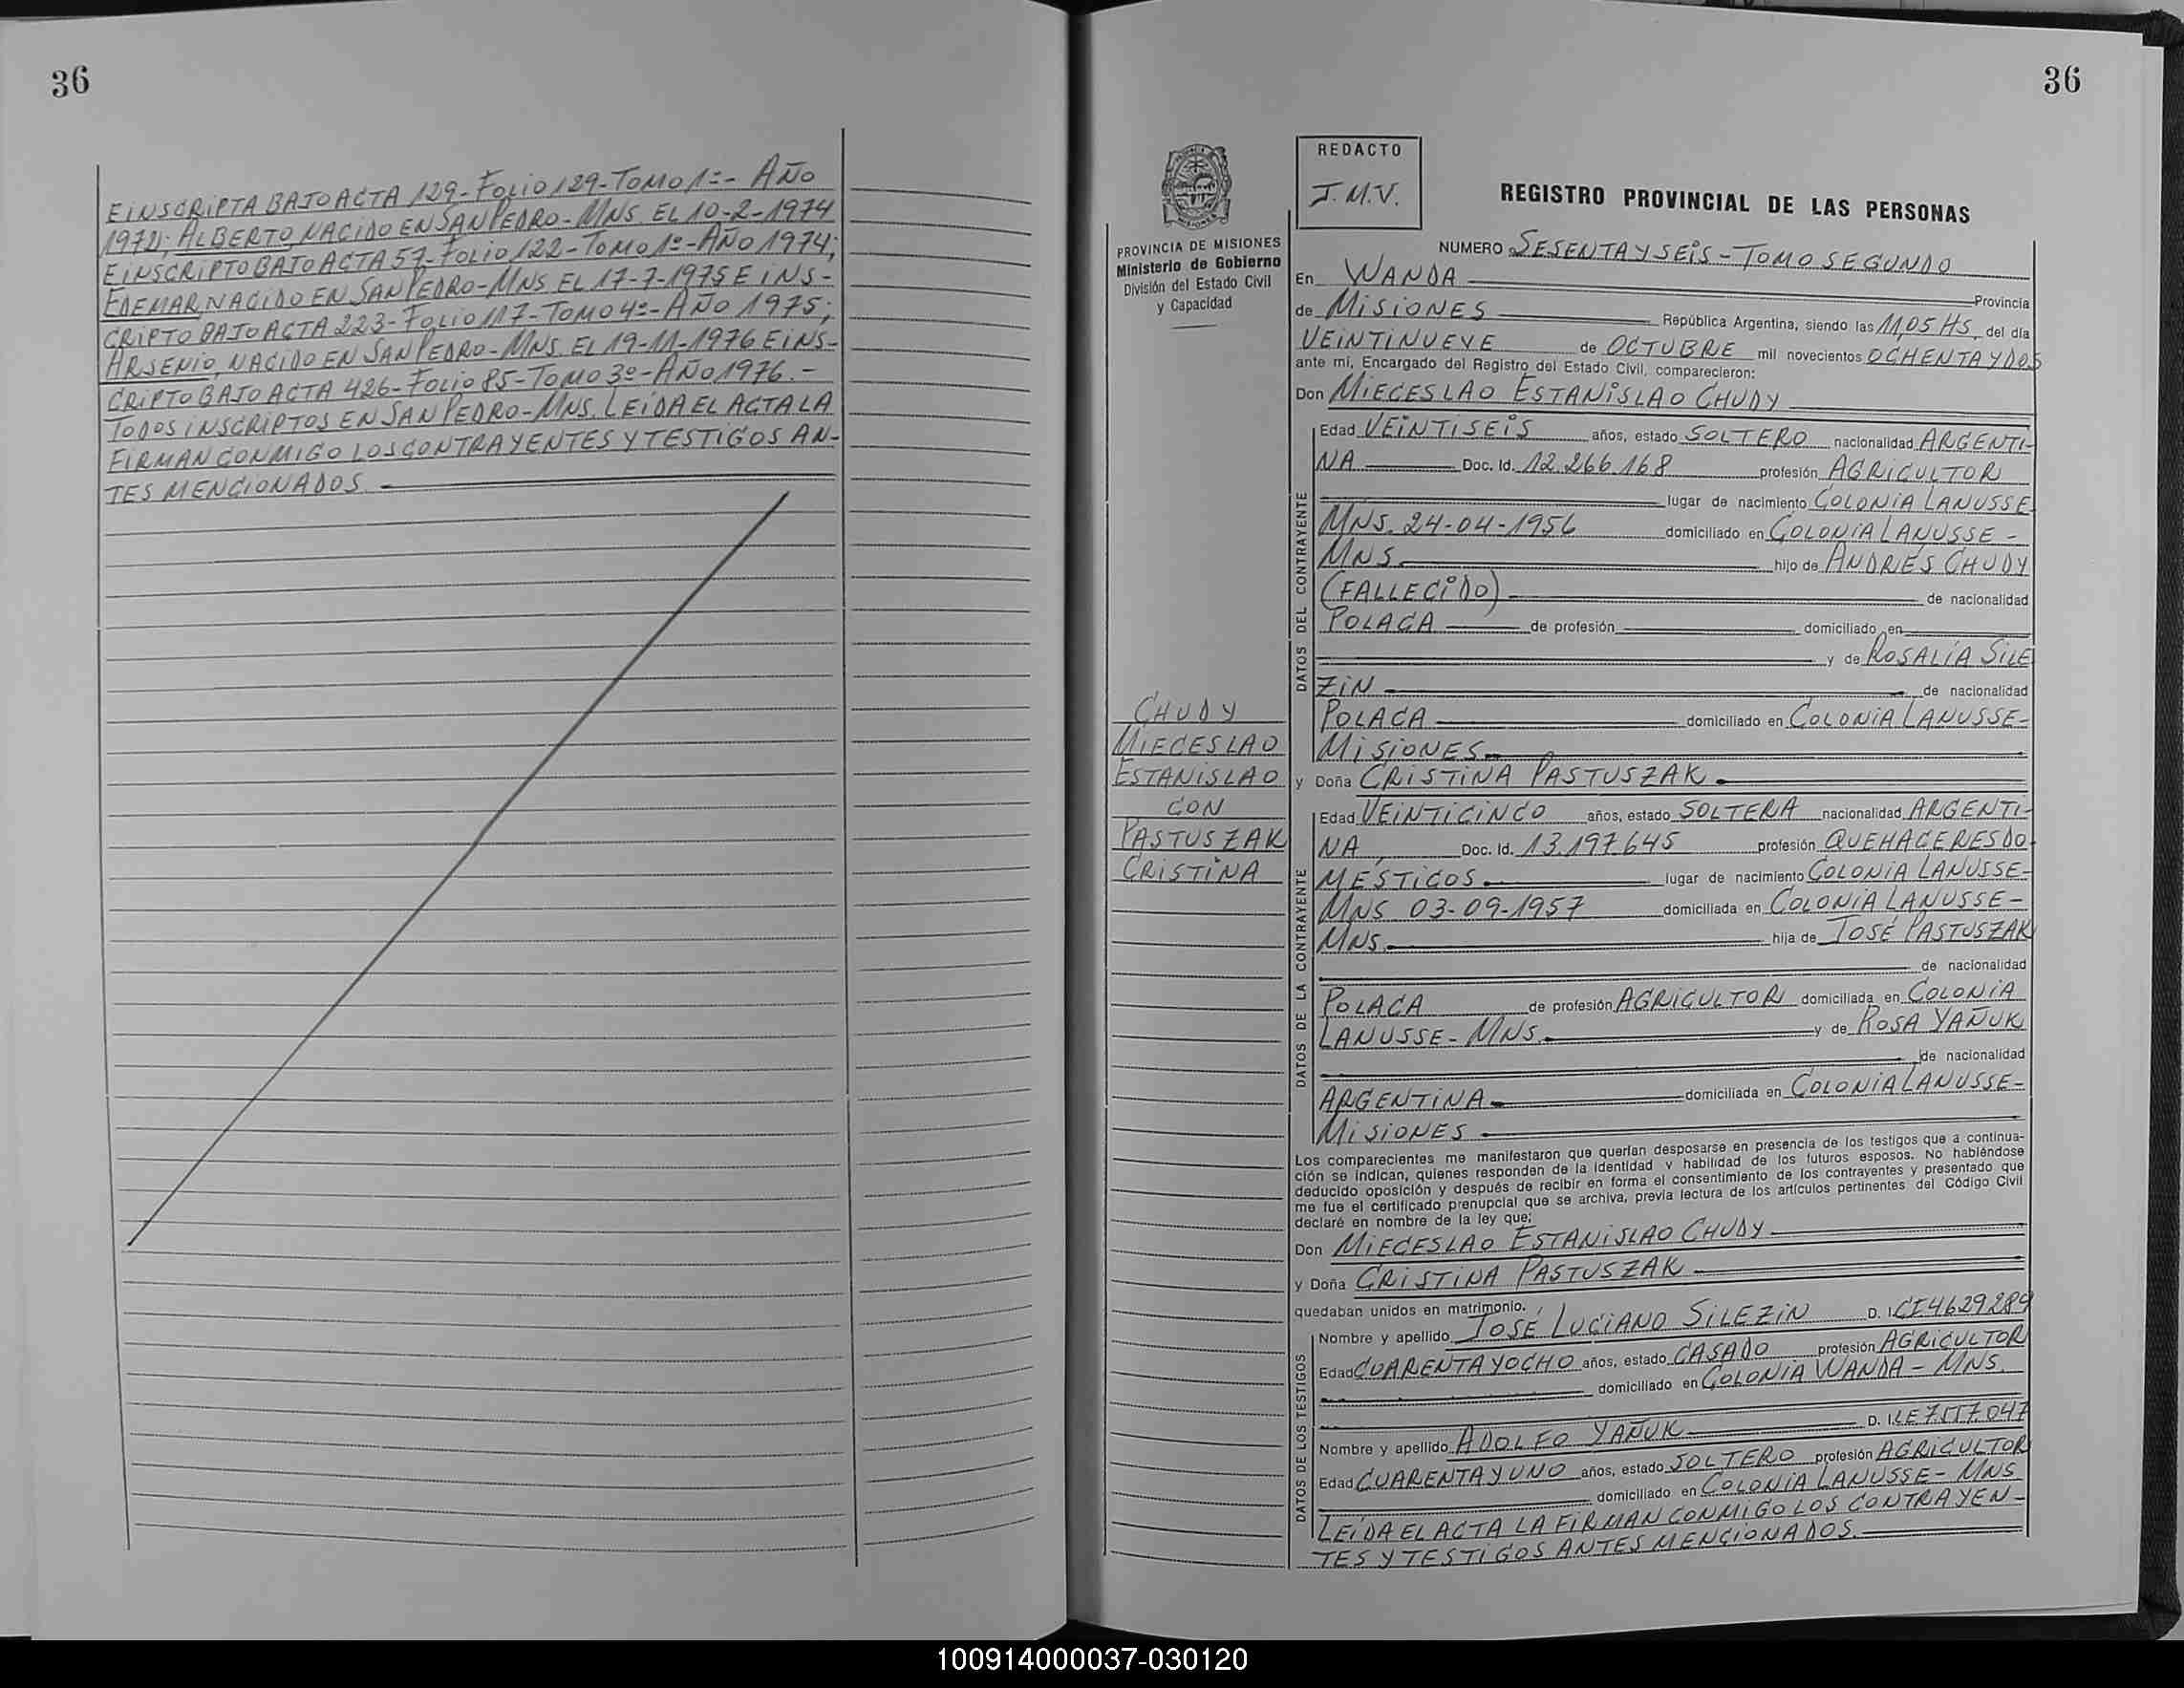 36
EINSCRIPTA BAJO ACTA 129-FOLIO 129-TOMO 1º- AÑO
1972; ALBERTO, NACIDO EN SAN PEDRO-MNS. EL 10-2-1974
E INSCRIPTO BAJO ACTA 57-FOLIO 122-TOMO 1º-AÑO 1974;
EDEMAR, NACIDO EN SAN PEDRO-MNS. EL 17-7-1975 E INS-
CRIPTO BAJO ACTA 223-FOLIO 117-TOMO 4º-AÑO 1975;
ARSENIO, NACIDO EN SAN PEDRO-MNS. EL 19-11-1976 E INS-
CRIPTO BAJO ACTA 426-FOLIO 85-TOMO 3º-AÑO 1976.-
TODOS INSCRIPTOS EN SAN PEDRO-MNS. LEIDA EL ACTA LA
FIRMAN CONMIGO LOS CONTRAYENTES Y TESTIGOS AN-
TES MENCIONADOS.-
36
PROVINCIA DE MISIONES
Ministerio de Gobierno
División del Estado Civil
y Capacidad
CHUDY
MIECESLAO
ESTANISLAO
CON
PASTUSZAK
CRISTINA
REDACTO
J.M.V.
REGISTRO PROVINCIAL DE LAS PERSONAS
NUMERO SESENTA Y SEIS - TOMO SEGUNDO
En WANDA Provincia
de MISIONES República Argentina, siendo las 11,05 HS. del día
VEINTINUEVE de OCTUBRE mil novecientos OCHENTA Y DOS
ante mí, Encargado del Registro del Estado Civil, comparecieron:
Don MIECESLAO ESTANISLAO CHUDY
DATOS DEL CONTRAYENTE
Edad VEINTISEIS años, estado SOLTERO nacionalidad ARGENTI-
NA Doc. Id. 12.266.168 profesión AGRICULTOR
lugar de nacimiento COLONIA LANUSSE
MNS. 24-04-1956 domiciliado en COLONIA LANUSSE-
MNS. hijo de ANDRÉS CHUDY
(FALLECIDO) de nacionalidad
POLACA de profesión domiciliado en
y de ROSALÍA SILE
ZIN de nacionalidad
POLACA domiciliado en COLONIA LANUSSE-
MISIONES
y Doña CRISTINA PASTUSZAK
DATOS DE LA CONTRAYENTE
Edad VEINTICINCO años, estado SOLTERA nacionalidad ARGENTI-
NA Doc. Id. 13.197.645 profesión QUEHACERES DO-
MÉSTICOS lugar de nacimiento COLONIA LANUSSE-
MNS 03-09-1957 domiciliada en COLONIA LANUSSE-
MNS. hija de JOSÉ PASTUSZAK
de nacionalidad
POLACA de profesión AGRICULTOR domiciliada en COLONIA
LANUSSE-MNS. y de ROSA YAÑUK
de nacionalidad
ARGENTINA domiciliada en COLONIA LANUSSE-
MISIONES
Los comparecientes me manifestaron que querían desposarse en presencia de los testigos que a continua-
ción se indican, quienes responden de la identidad y habilidad de los futuros esposos. No habiéndose
deducido oposición y después de recibir en forma el consentimiento de los contrayentes y presentado que
me fue el certificado prenupcial que se archiva, previa lectura de los artículos pertinentes del Código Civil
declaré en nombre de la ley que:
Don MIECESLAO ESTANISLAO CHUDY
y Doña CRISTINA PASTUSZAK
quedaban unidos en matrimonio.
DATOS DE LOS TESTIGOS
Nombre y apellido JOSÉ LUCIANO SILEZIN D. I. CI 4629289
Edad CUARENTA Y OCHO años, estado CASADO profesión AGRICULTOR
domiciliado en COLONIA WANDA-MNS.
Nombre y apellido ADOLFO YAÑUK D. I. LE 7.557.047
Edad CUARENTA Y UNO años, estado SOLTERO profesión AGRICULTOR
domiciliado en COLONIA LANUSSE-MNS
LEÍDA EL ACTA LA FIRMAN CONMIGO LOS CONTRAYEN-
TES Y TESTIGOS ANTES MENCIONADOS.
100914000037-030120